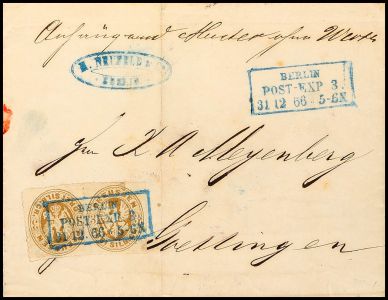 Anhängend Muster ohne Werth
M. NEUFELD & Co
BERLIN
BERLIN
POST-EXP 3
31 12 66 · 5-6N
Hrn K A Meyenberg
BERLIN
POST-EXP 3
31 12 66 · 5-6N
Goettingen